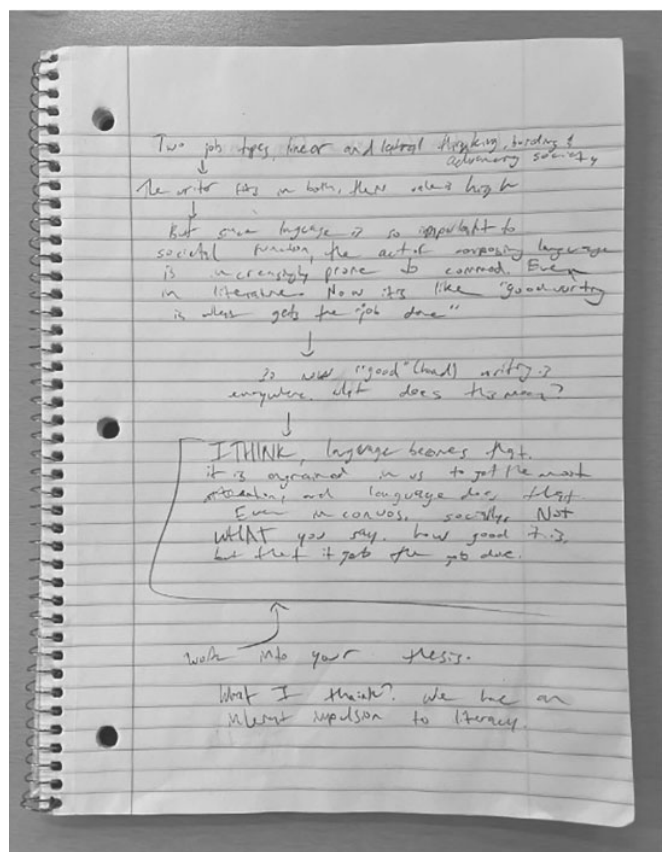 Two job types, linear and lateral thinking, building &
advancing society
The writer fits in both, their value is high
But since language is so important to
societal function, the act of composing language
is increasingly prone to commod. Even
in literature. Now it's like "good writing
is whatever gets the job done"
So now "good" (bad) writing is
everywhere. What does this mean?
I THINK, language becomes flat.
it is ingrained in us to get the most
attention, and language does that.
Even in convos, socially. Not
WHAT you say, how good it is,
but that it gets the job done.
Work into your thesis.
What I think? We have an
inherent impulsion to literacy.